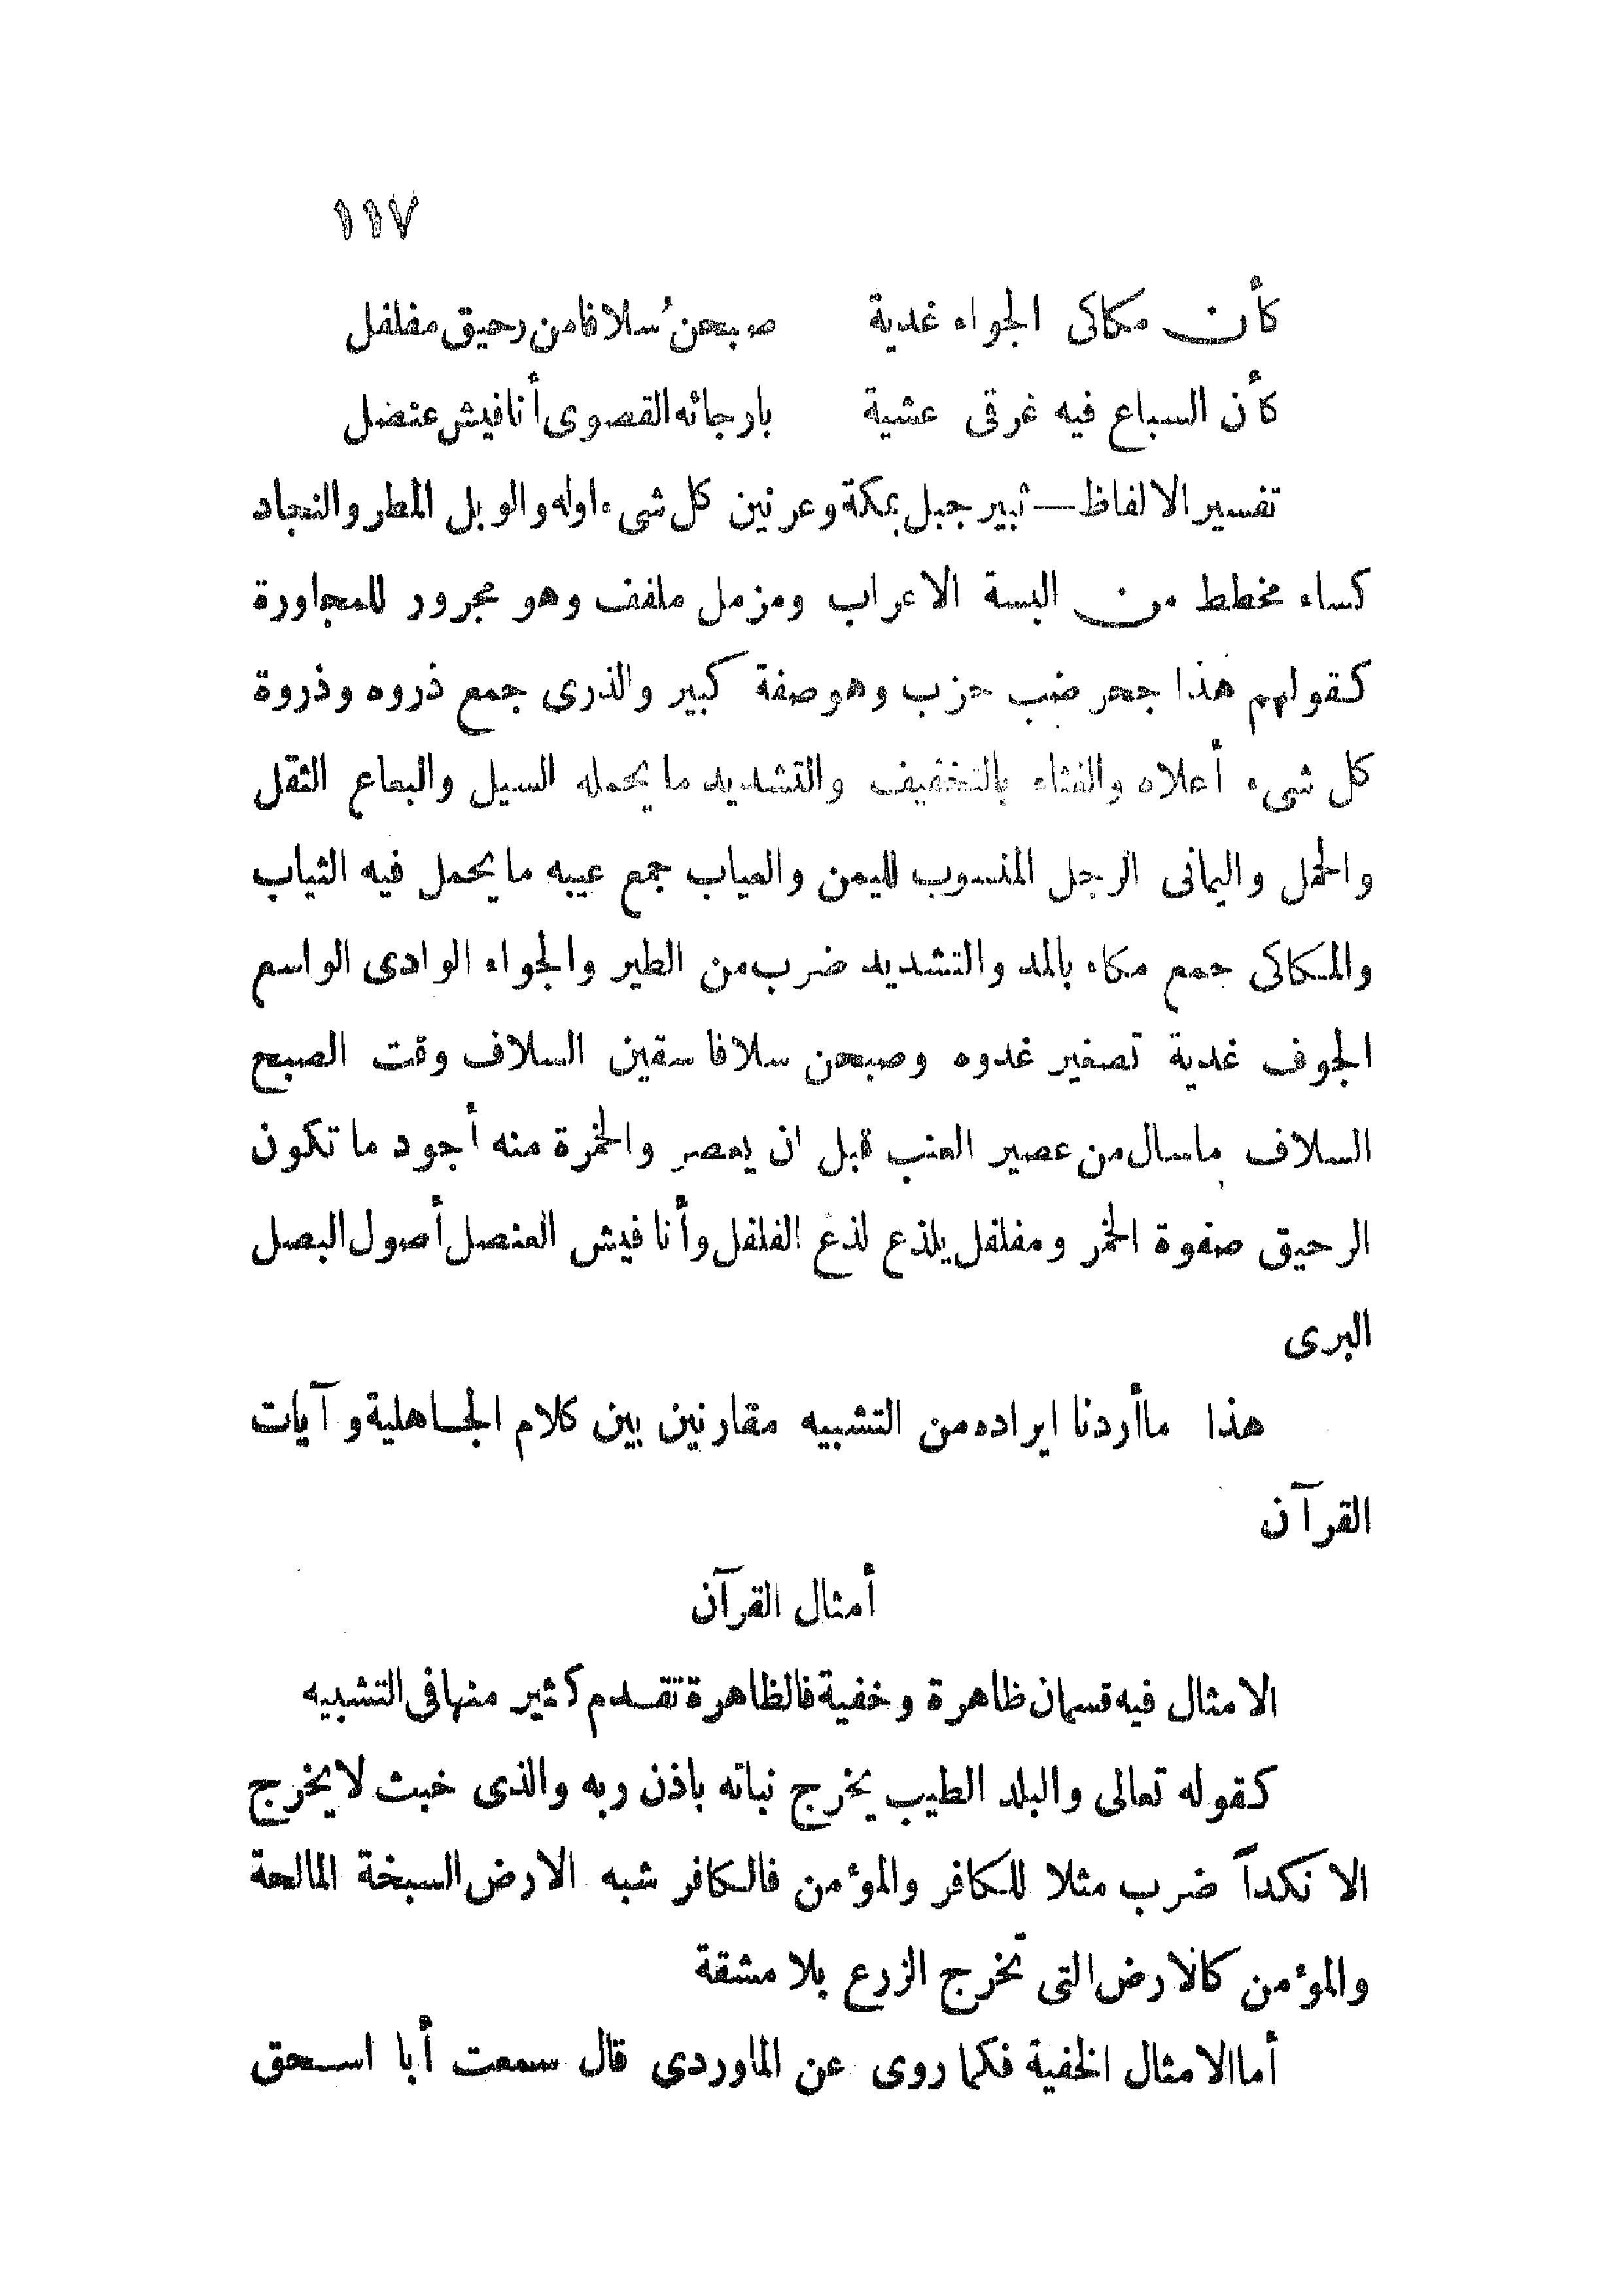 ١١٧
كأن مكاكى الجواء غدية صبحن سُلافا من رحيق مفلفل
كأن السباع فيه غرقى عشية بارجائه القصوى أنافيش عنصل
تفسير الالفاظ — ثبير جبل بمكة وعرنين كل شىء اوله والوبل المطر والنجاد
كساء مخطط من البسة الاعراب ومزمل ملفف وهو مجرور للمجاورة
كقولهم هذا جحر ضب خرب وهو صفة كبير والذرى جمع ذروه وذروة
كل شىء أعلاه والغثاء بالتخفيف والتشديد ما يحمله السيل والبعاع الثقل
والحمل واليمانى الرجل المنسوب لليمن والعياب جمع عيبه ما يحمل فيه الثياب
والمكاكى جمع مكاء بالمد والتشديد ضرب من الطير والجواء الوادى الواسع
الجوف غدية تصغير غدوه وصبحن سلافا سقين السلاف وقت الصبح
السلاف ماسال من عصير العنب قبل ان يعصر والخمرة منه أجود ما تكون
الرحيق صفوة الخمر ومفلفل يلذع لذع الفلفل وأنافيش العنصل أصول البصل
البرى
هذا ماأردنا ايراده من التشبيه مقارنين بين كلام الجاهلية وآيات
القرآن
أمثال القرآن
الامثال فيه قسمان ظاهرة وخفية فالظاهرة تقدم كثير منها فى التشبيه
كقوله تعالى والبلد الطيب يخرج نباته باذن ربه والذى خبث لا يخرج
الا نكداً ضرب مثلا للكافر والمؤمن فالكافر شبه الارض السبخة المالحة
والمؤمن كالارض التى تخرج الزرع بلا مشقة
أما الامثال الخفية فكما روى عن الماوردى قال سمعت أبا اسحق